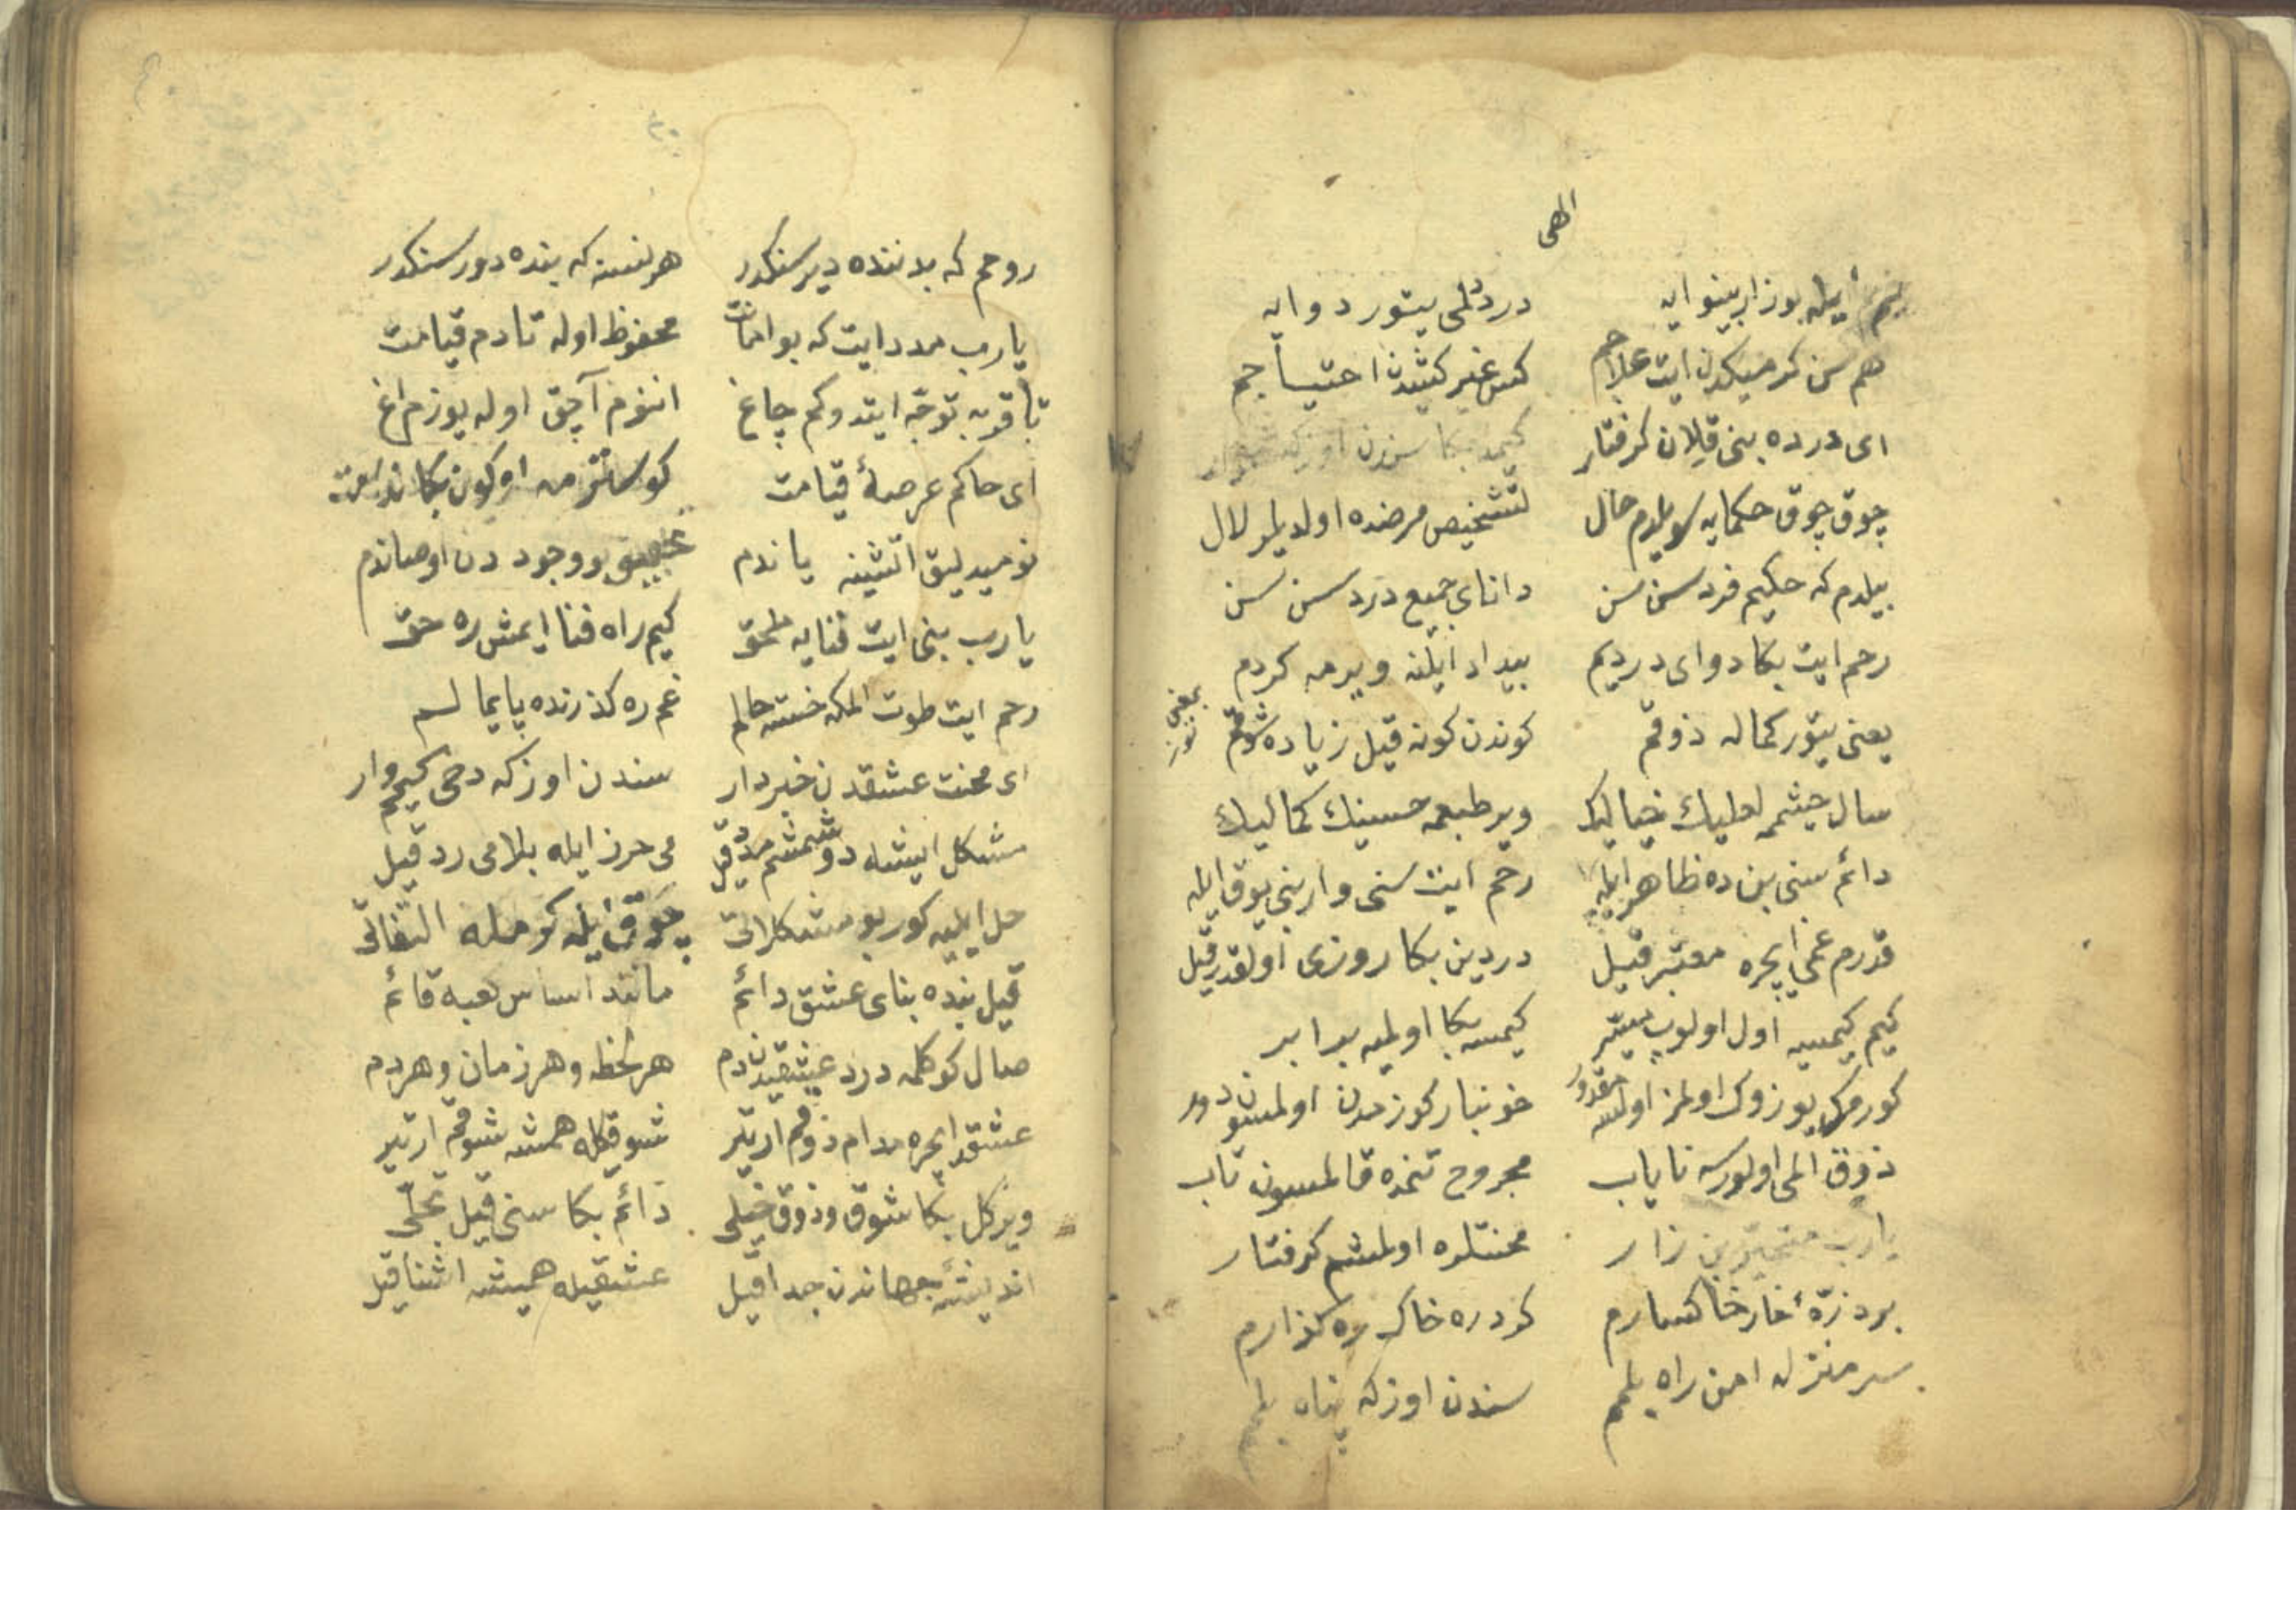 الهی
رحم ایله بو زار بینوایه دردلمی یتور دوایه
هم سن کرمیکدن ایت علاجم کس غیر کشیدن احتیاجم
ای درده بنی قیلان کرفتار کیمد بکا سندن اوزکه
چوق چوق حکمایه سویلدم حال تشخیص مرضده اولدیلر لال
بیلدم که حکیم فرد سن سن دانای جمیع درد سن سن
رحم ایت بکا دوای دردیم بیداد ایلنه ویرمه کردم
یعنی یتور کماله ذوقم کوندن کونه قیل زیاده شوقم
سال چشممه لعلیك خیالیك ویر طبعمه حسنیك کمالیك
دائم سنی بن ده ظاهر ایله رحم ایت سنی وار بنی یوق ایله
قدرم غمی ایچره معتبر قیل دردین بکا روزی اولقدر قیل
کیم کیمسیه اول اولوب میسر کیمسه بکا اولمیه برابر
کورمک یوزوك اولمز اولسه مقدور خونبار کوزمدن اولمسون دور
ذوق المی اولورسه نایاب مجروح تنمده قالمسون تاب
یارب متحیر بن زار محنتلره اولمشم کرفتار
بر ذرّهٔ خار خاکسارم کردره خاك ره کذارم
سر منزل امن راه بلمم سندن اوزکه پناه بلمم
روحم که بدننده دیر سنکدر هر نسنه که بنده دور سنکدر
یارب مدد ایت که بو امانت محفوظ اوله تا دم قیامت
تاقویه توجّه ایتدوکم چاغ اننوم آچق اوله یوزم اغ
ای حاکم عرصهٔ قیامت کوسترمه اوکون بکا ندامت
نومیدلیق اتشینه یاندم بو وجوددن اوصاندم
یارب بنی ایت فنایه ملحق کیم راه فنا ایمش ره حق
رحم ایت طوت المکه خسته حالم غم ره کذرنده پایمالم
ای محنت عشقدن خبردار سندن اوزکه دخی کیمم وار
مشکل ایشه دوشمشم مدد قیل می حرز ایله بلامی رد قیل
حل ایلیه کور بو مشکلاتی چوق ایله کومله التفاتی
قیل بنده بنای عشق دائم مانند اساس کعبه قائم
صال کوکلمه درد عشقیدن دم هر لحظه و هر زمان و هر دم
عشقد ایچره مدام ذوقم ارتیر شوقکله همشه شوقم ارتیر
ویر کل بکا شوق و ذوق خیلی دائم بکا سنی قیل تجلّی
اندیشهٔ جهاندن جدا قیل عشقیله همیشه اشنا قیل